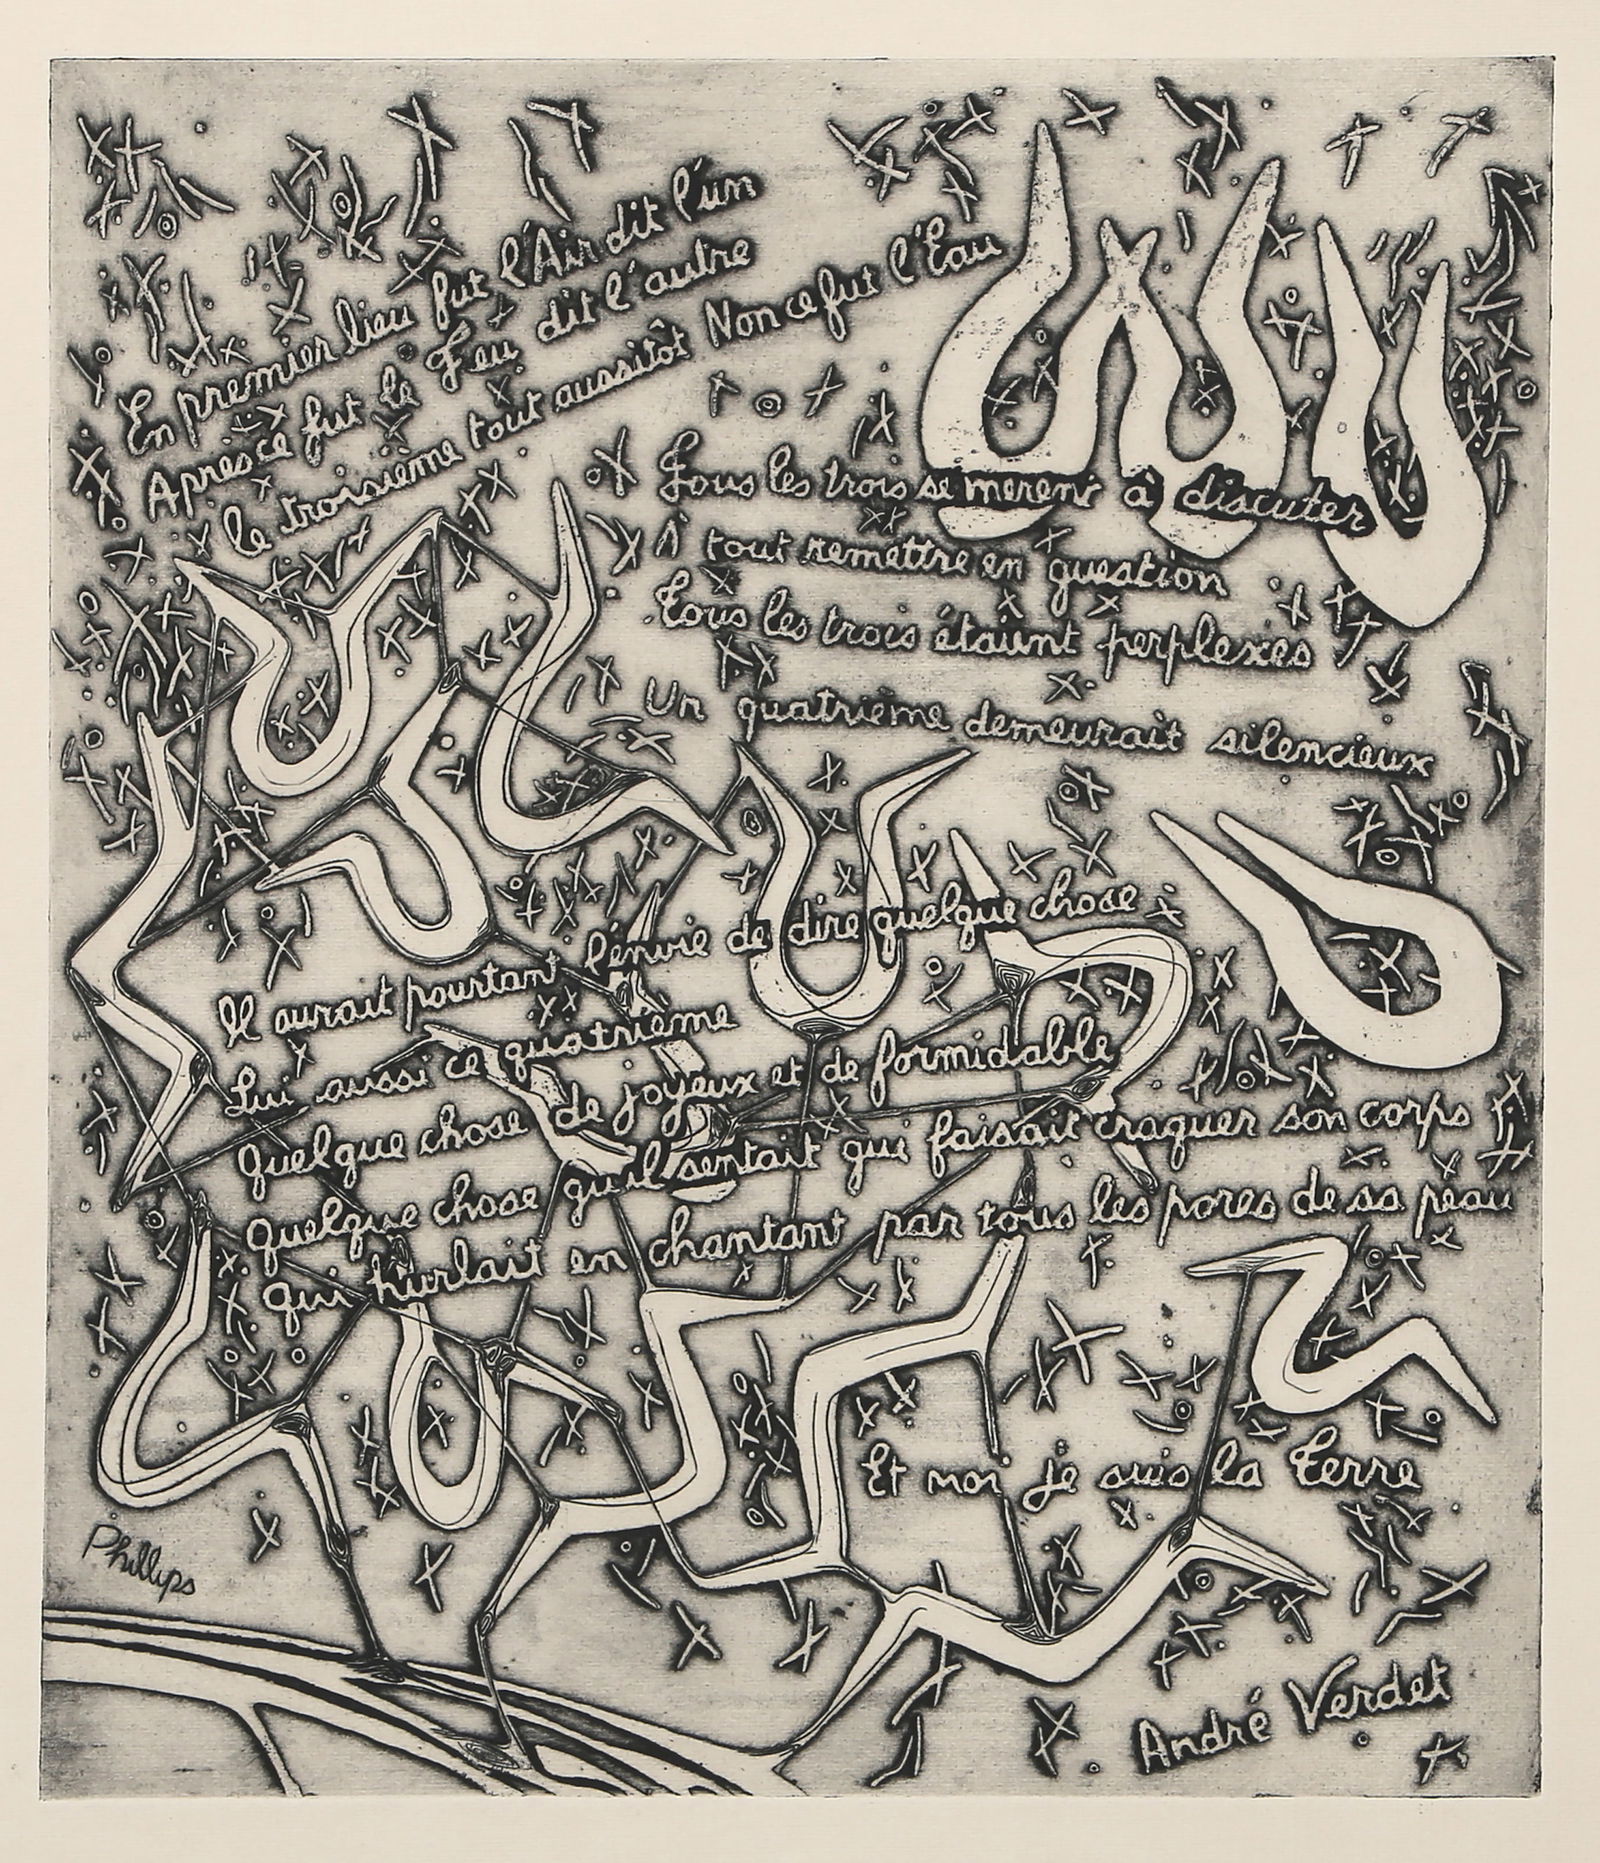 En premier lieu fut l'Air dit l'un
Après ce fut le Feu dit l'autre
le troisième tout aussitôt Non ce fut l'Eau
Tous les trois se mirent à discuter
À tout remettre en question
Tous les trois étaient perplexes
Un quatrième demeurait silencieux
Il aurait pourtant l'envie de dire quelque chose
Lui aussi ce quatrième
Quelque chose de joyeux et de formidable
quelque chose qu'il sentait qui faisait craquer son corps
qui hurlait en chantant par tous les pores de sa peau
Et moi je suis la Terre
Phillips
André Verdet